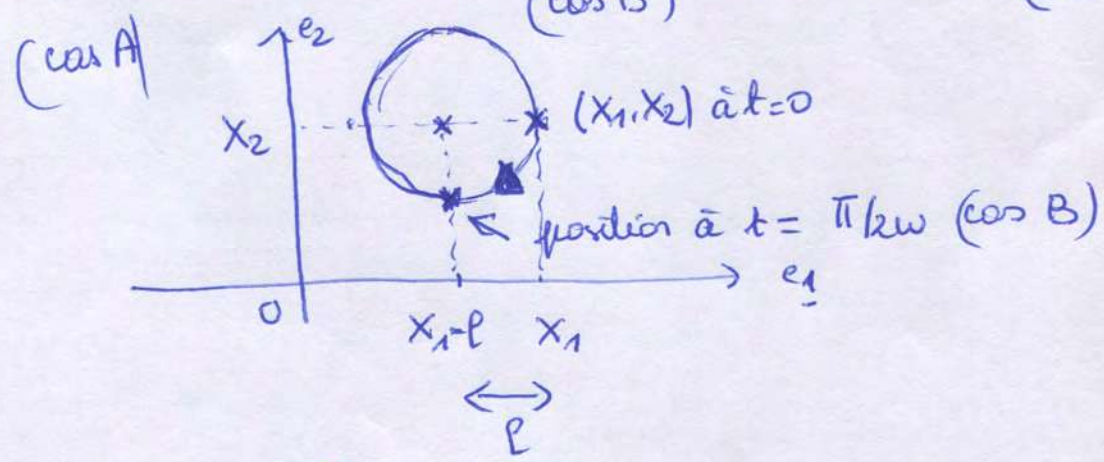 (cas B)
(cas A)
e2
X2
(X1, X2) à t=0
position à t = π/2ω (cas B)
O
e1
X1-ℓ X1
ℓ